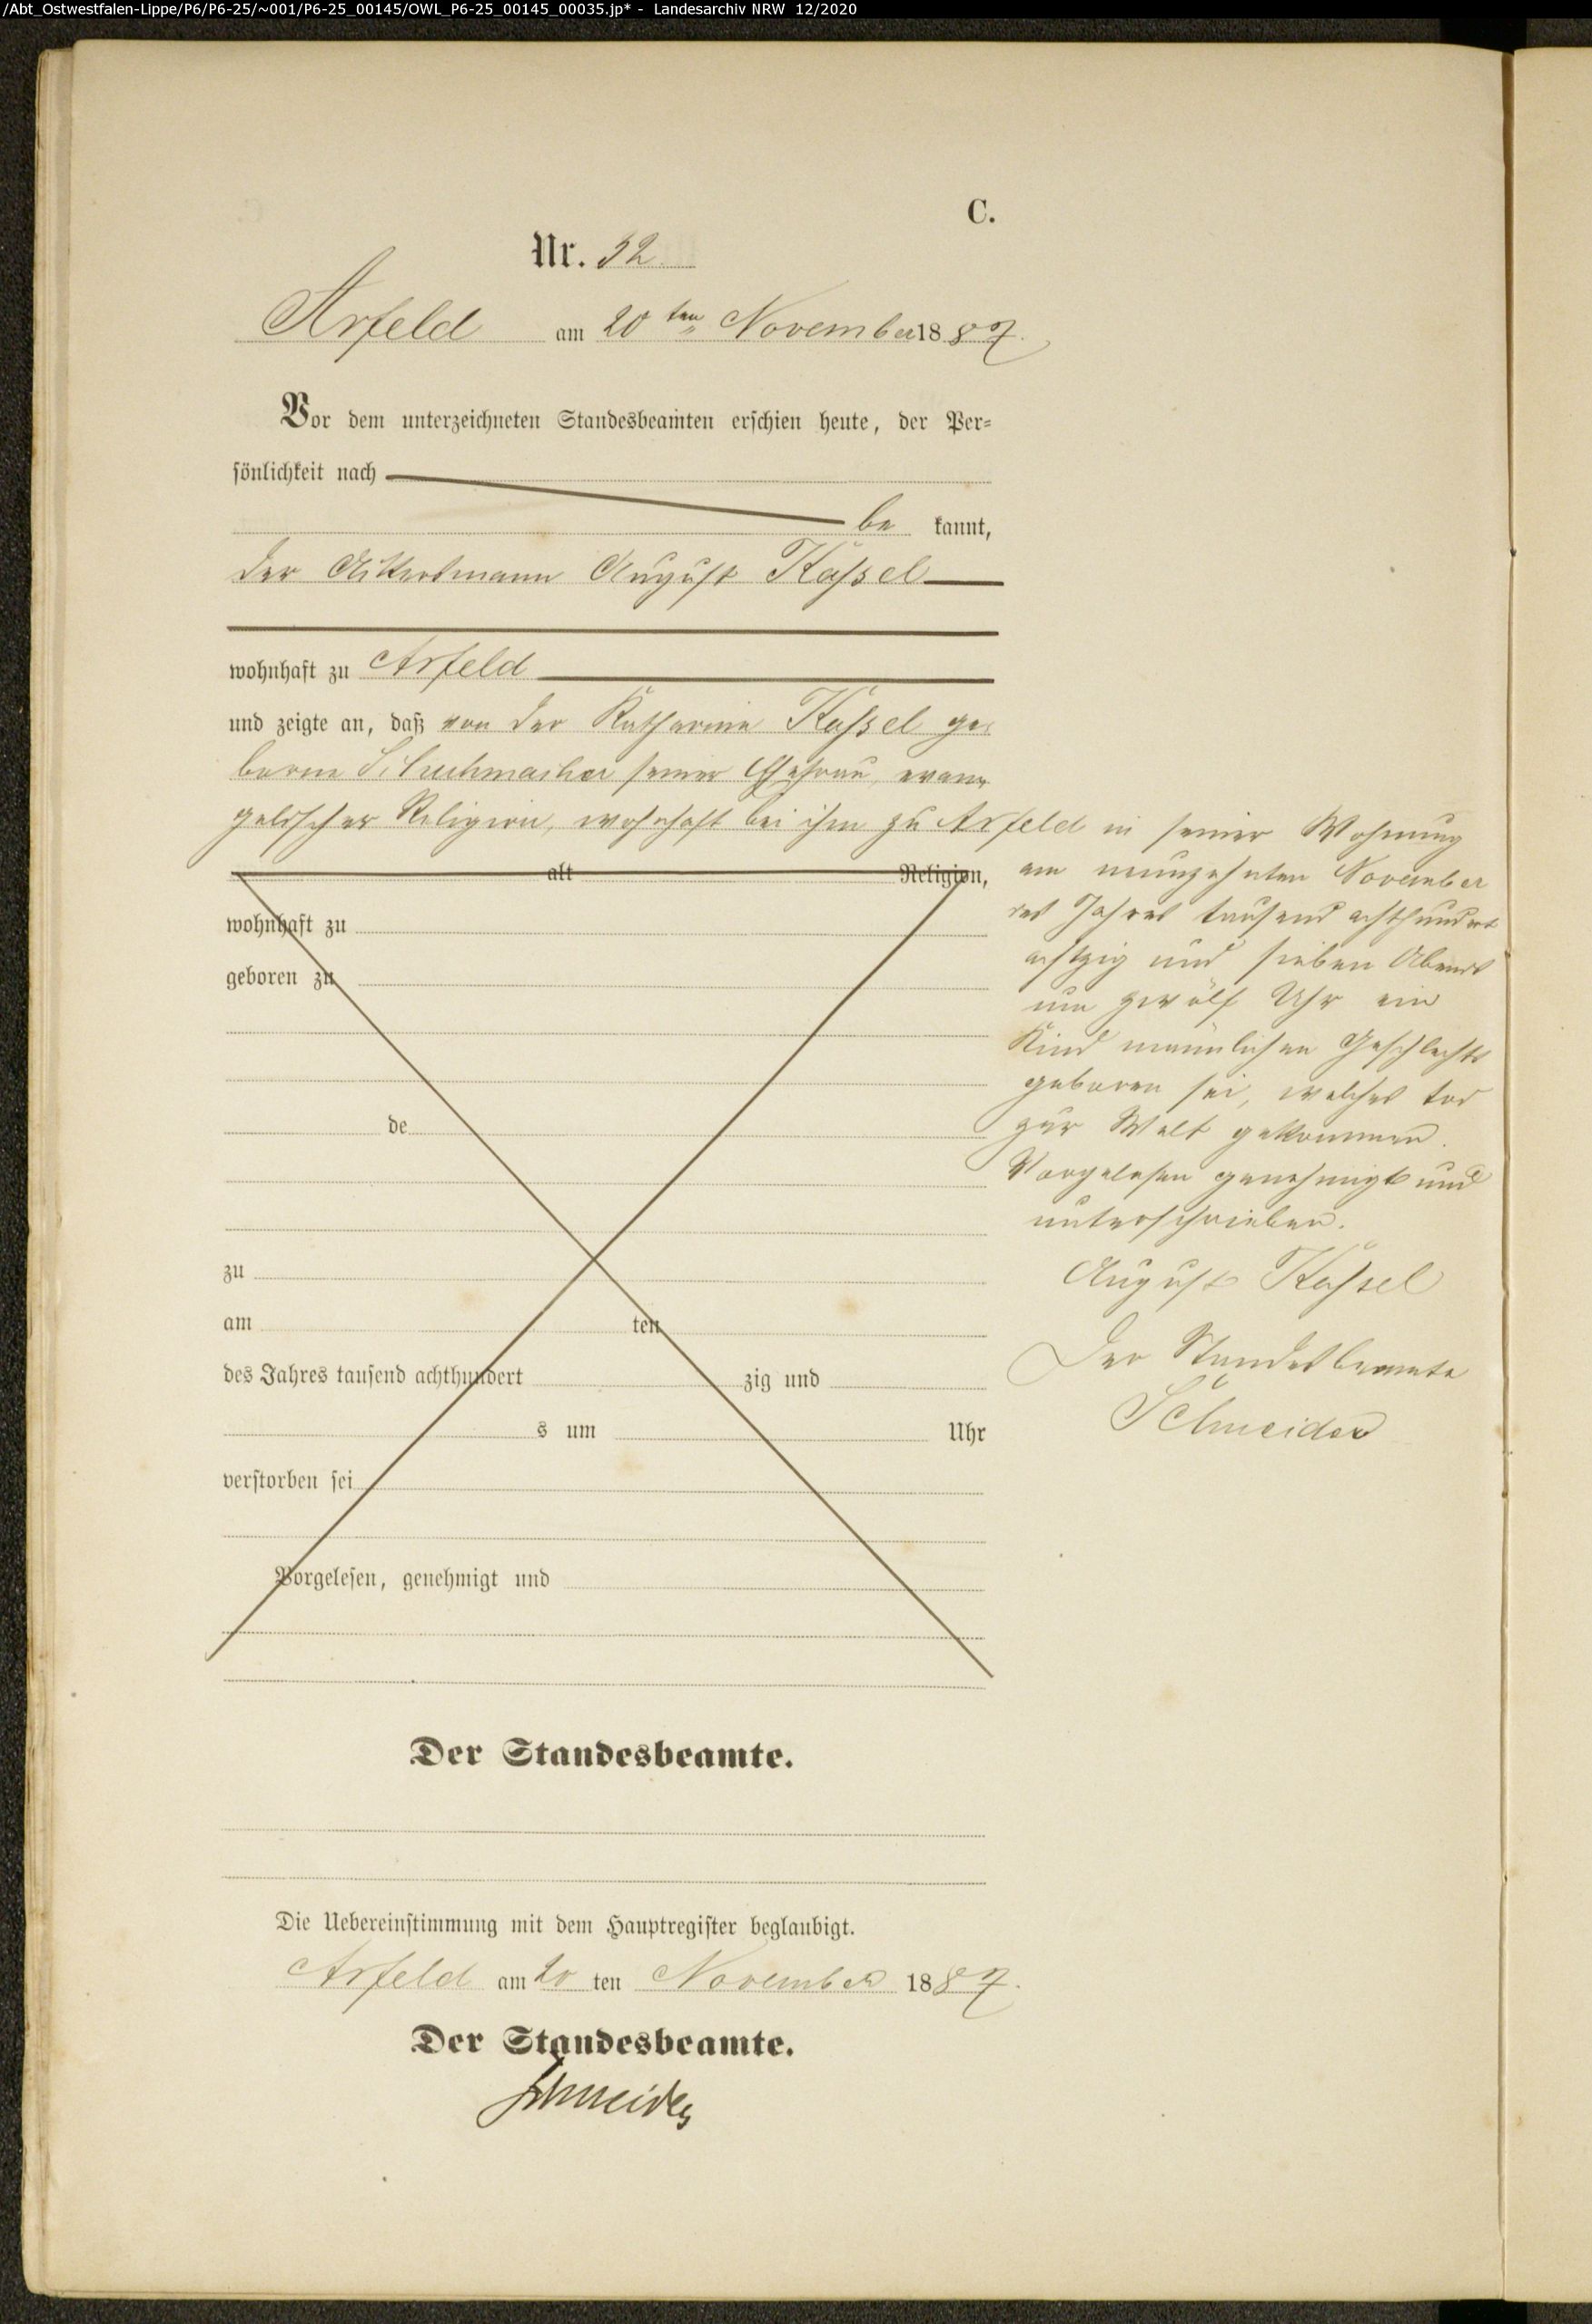 /Abt_Ostwestfalen-Lippe/P6/P6-25/~001/P6-25_00145/OWL_P6-25_00145_00035.jp* - Landesarchiv NRW 12/2020
C.
Nr. 32
Arfeld am 20ten November 1887.
Vor dem unterzeichneten Standesbeamten erschien heute, der Per-
sönlichkeit nach
be kannt,
der Ackersmann August Kaßel
wohnhaft zu Arfeld
und zeigte an, daß von der Katharine Kaßel ge-
borne Schuhmacher seiner Ehefrau, evan-
gelischer Religion, wohnhaft bei ihm zu Arfeld in seiner Wohnung
am neunzehnten November
des Jahres tausend achthundert
achtzig und sieben Abends
um zwölf Uhr ein
Kind männlichen Geschlechts
geboren sei, welches tod
zur Welt gekommen.
Vorgelesen genehmigt und
unterschrieben.
August Kaßel
Der Standesbeamte
Schneider
alt Religion,
wohnhaft zu
geboren zu
de
zu
am ten
des Jahres tausend achthundert zig und
s um Uhr
verstorben sei
Vorgelesen, genehmigt und
Der Standesbeamte.
Die Uebereinstimmung mit dem Hauptregister beglaubigt.
Arfeld am 20 ten November 1887.
Der Standesbeamte.
Schneider